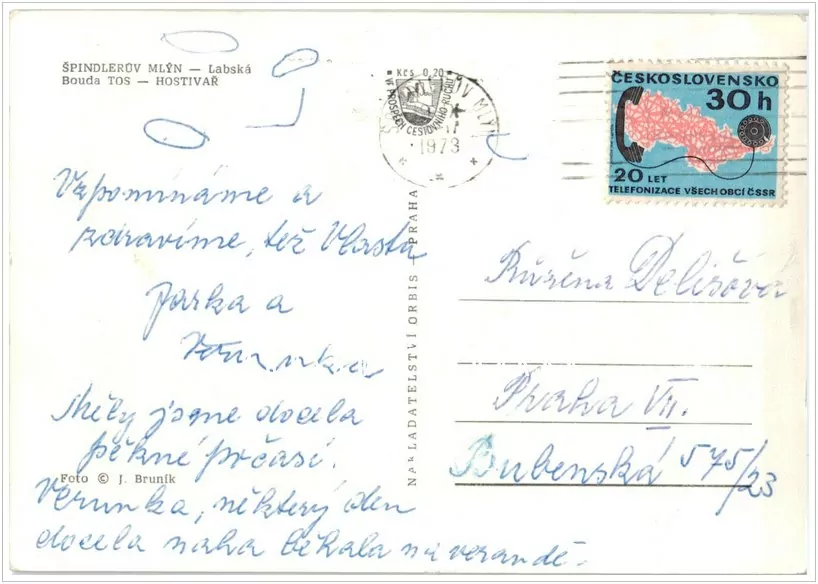 ŠPINDLERŮV MLÝN — Labská
Bouda TOS — HOSTIVAŘ
Kčs 0,20
VE PROSPĚCH CESTOVNÍHO RUCHU
MLÝN
1973
ČESKOSLOVENSKO
30 h
20 LET
TELEFONIZACE VŠECH OBCÍ ČSSR
Vzpomínáme a
zdravíme, též Vlasta
Jarka a
Měly jsme docela
pěkné počasí.
Verunka, některý den
docela nahá běhala na verandě.
Foto © J. Bruník
NAKLADATELSTVÍ ORBIS PRAHA
Růžena Delišová
Praha VII.
Bubenská 575/23